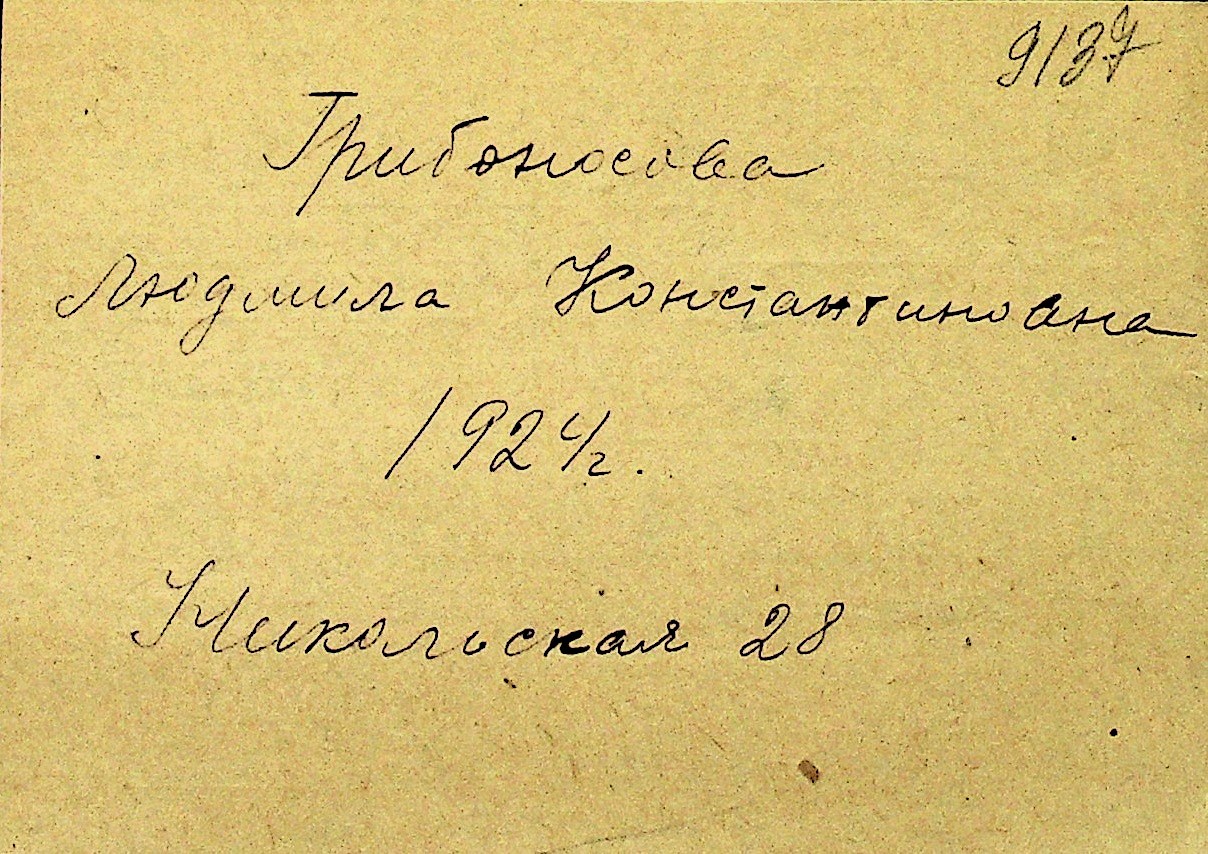 9137
Грибоносова
Людмила Константиновна
1924г.
Никольская 28